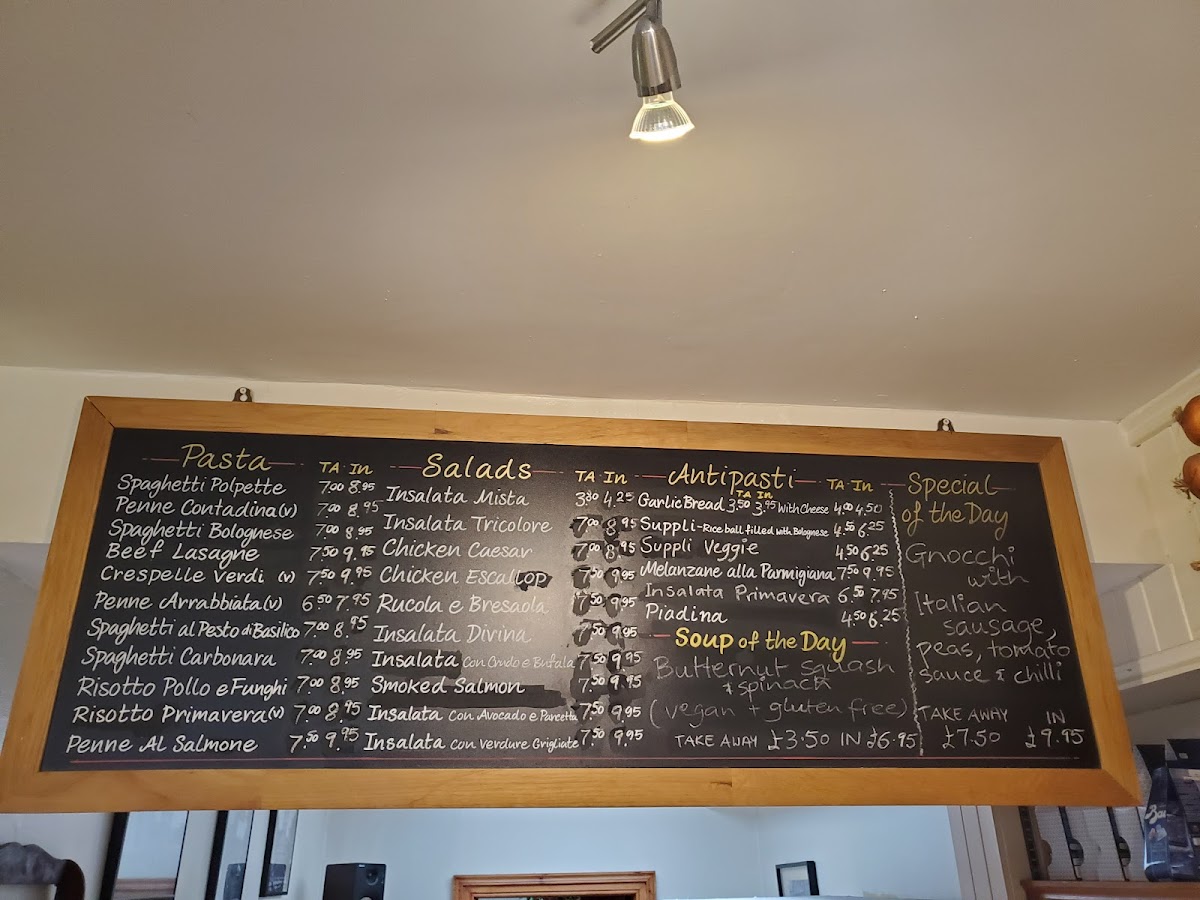 Pasta TA In
Spaghetti Polpette 7.00 8.95
Penne Contadina (v) 7.00 8.95
Spaghetti Bolognese 7.00 8.95
Beef Lasagne 7.50 9.95
Crespelle Verdi (v) 7.50 9.95
Penne Arrabbiata (v) 6.50 7.95
Spaghetti al Pesto di Basilico 7.00 8.95
Spaghetti Carbonara 7.00 8.95
Risotto Pollo e Funghi 7.00 8.95
Risotto Primavera (v) 7.00 8.95
Penne Al Salmone 7.50 9.95
Salads TA In
Insalata Mista 3.80 4.25
Insalata Tricolore 7.00 8.95
Chicken Caesar 7.00 8.95
Chicken Escallop 7.50 9.95
Rucola e Bresaola 7.50 9.95
Insalata Divina 7.50 9.95
Insalata con Crudo e Bufala 7.50 9.95
Smoked Salmon 7.50 9.95
Insalata con Avocado e Pancetta 7.50 9.95
Insalata con Verdure Grigliate 7.50 9.95
Antipasti TA In
TA In
Garlic Bread 3.50 3.95 With Cheese 4.00 4.50
Suppli - Rice ball filled with Bolognese 4.50 6.25
Suppli Veggie 4.50 6.25
Melanzane alla Parmigiana 7.50 9.95
Insalata Primavera 6.50 7.95
Piadina 4.50 6.25
Soup of the Day
Butternut squash
& spinach
(vegan + gluten free)
TAKE AWAY £3.50 IN £6.95
Special
of the Day
Gnocchi
with
Italian
sausage,
peas, tomato
sauce & chilli
TAKE AWAY IN
£7.50 £9.95